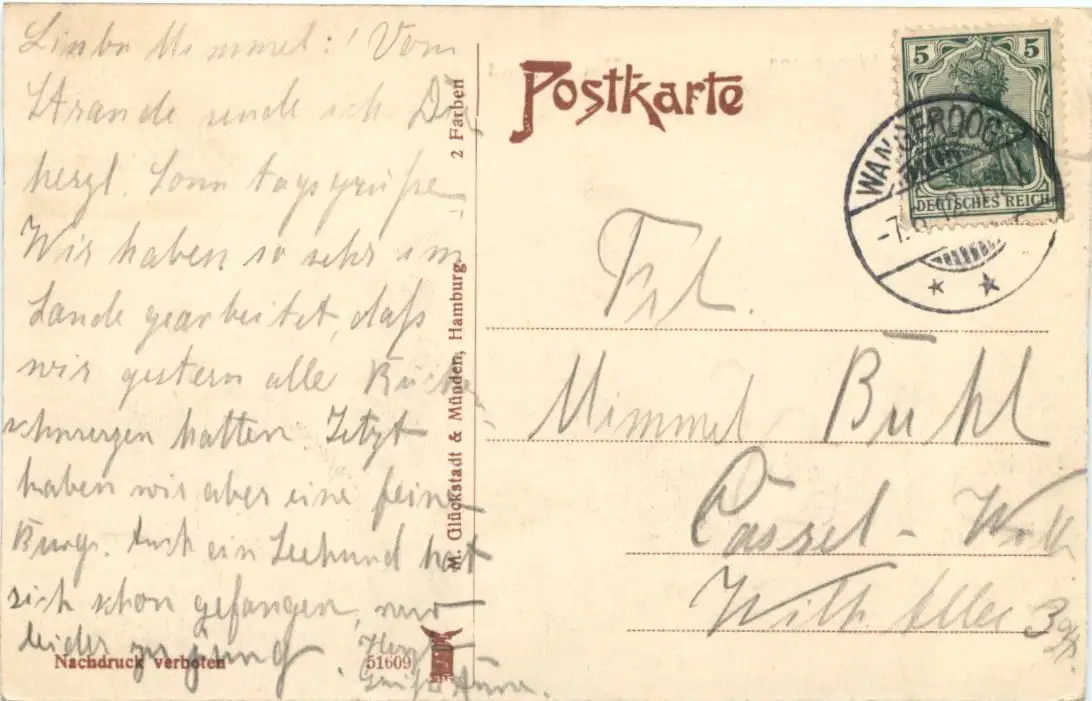 Liebe Mimmel! Vom
Strande sende ich Dir
herzl. Sonntagsgrüße
Wir haben so sehr im
Sande gearbeitet, daß
wir gestern alle
schmerzen hatten Jetzt
haben wir aber eine feine
Burg. Auch ein Seehund hat
sich schon gefangen, nur
leider zu jung.
Herzl.
Grüße Anna.
Nachdruck verboten
51609
M. Glückstadt & Münden, Hamburg.
2 Farben
Postkarte
5 5
DEUTSCHES REICH
WANGEROOG
Frl.
Mimmel Bühl
Cassel - Wilh.
Wilh. Allee 3